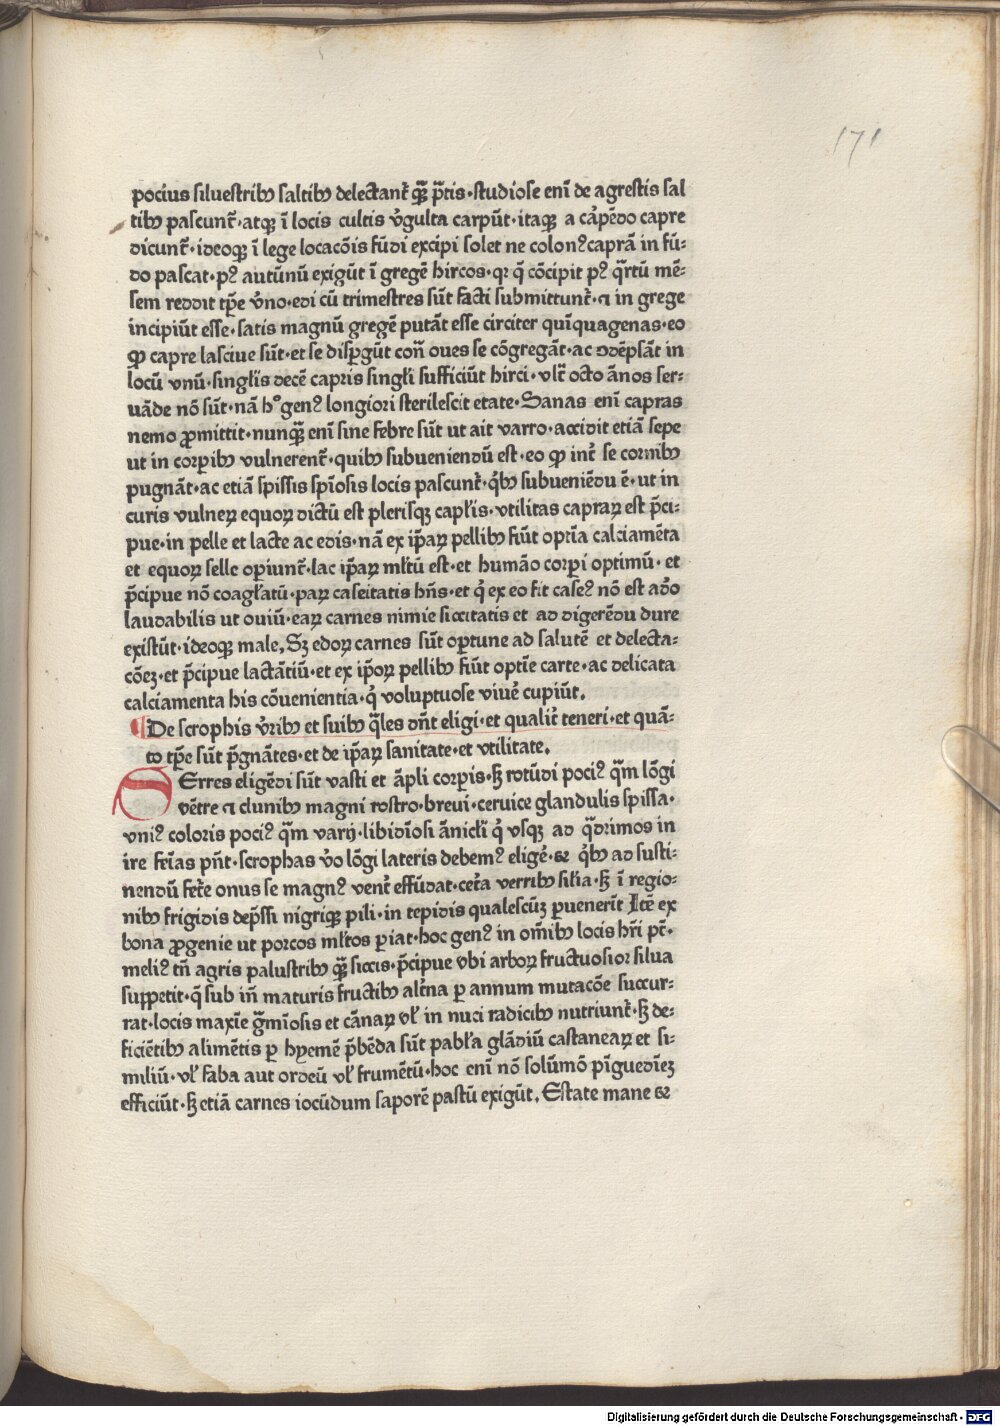 171
pocius siluestribꝫ saltibꝫ delectant᷑ qꝫ̄ p̄tis·studiose eni᷑ de agrestis sal
tibꝫ pascunt᷑·atqꝫ ī locis cultis v̄gulta carpūt·itaqꝫ a ca᷑pēdo capre
dicunt᷑·ideoqꝫ ī lege locacōis fūdi excipi solet ne colonꝰcaprā in fū⸗
do pascat·pꝰ autūnū exigūt ī gregē hircos·qꝛ q̄ cōcipit pꝰ q̄rtū mē⸗
sem reddit tp̄e v̄no·edi cū trimestres sūt facti submittunt᷑·⁊ in grege
incipiūt esse·satis magnū gregē putāt esse circiter quīquagenas·eo
ꝙ capre lasciue sūt·et se disp̄gūt con̄ oues se cōgregāt·ac ↄdēpsāt in
locū vnū·singl̄is decē capris singl̄i sufficiūt hirci·vlt᷑ octo ānos ser⸗
uāde nō sūt·nā hᵒ genꝰ longiori sterilescit etate·Sanas eni᷑ capras
nemo ꝓmittit·nunqꝫ̄ eni᷑ sine febre sūt ut ait varro·accidit etiā sepe
ut in corꝑibꝫ vulnerent᷑·quibꝫ subueniendū est·eo ꝙ int᷑ se cornibꝫ
pugnāt·ac etiā spissis spīosis locis pascunt᷑·qͥbꝫ subueniēdu ē·ut in
curis vulneꝝ equoꝝ dictū est plerisqꝫ capl̄is·vtilitas capraꝝ est p̄ci⸗
pue·in pelle et lacte ac edis·nā ex ip̄aꝝ pellibꝫ fiūt optīa calciamēta
et equoꝝ selle oꝑiunt᷑·lac ip̄aꝝ ml̄tū est·et humāo corꝑi optimū·et
p̄cipue nō coagl̄atū·paꝝ caseitatis hn̄s·et qͥ ex eo fit caseꝰ nō est adͦo
laudabilis ut ouiū·eaꝝ carnes nimie siccitatis et ad digerēdu dure
existūt·ideoqꝫ male,Sꝫ edoꝝ carnes sūt oꝑtune ad salutē et delecta⸗
cōeꝫ·et p̄cipue lactātiū·et ex ip̄oꝝ pellibꝫ fiūt optīe carte·ac delicata
calciamenta his cōuenientia·qͥ voluptuose viue᷑ cupiūt.
¶De scrophis v̄ribꝫ et suibꝫ q̄les dn̄t eligi·et qualit᷑ teneri·et quā⸗
to tp̄e sūt p̄gnātes·et de ip̄aꝝ sanitate·et vtilitate.
S Erres eligēdi sūt vasti et āpli corꝑis·sꝫ rotūdi pociꝰ qͣm lōgi
vētre ⁊ clunibꝫ magni rostro·breui·ceruice glandulis spissa·
vniꝰ coloris pociꝰ qͣm varij·libidīosi ānicl̄i qͥ vsqꝫ ad q̄drimos in
ire fēias pn̄t·scrophas v̄o lōgi lateris debemꝰ elige᷑·⁊ qͥbꝫ ad susti⸗
nendū fet᷑e onus se magnꝰ vent᷑ effūdat·cet᷑a verribꝫ sil̄ia·sꝫ ī regio⸗
nibꝫ frigidis dep̄ssi nigriqꝫ pili·in tepidis qualescūꝫ ꝓuenerīt Itē ex
bona ꝓgenie ut porcos ml̄tos ꝑiat·hoc genꝰ in om̄ibꝫ locis hr̄i pt᷑·
meliꝰ tn̄ agris palustribꝫ qꝫ̄ siccis·p̄cipue vbi arboꝝ fructuosioꝝ silua
suppetit·q̄ sub in̄ maturis fructibꝫ alt᷑na ꝑ annum mutacōe succur⸗
rat·locis maxīe g̅mīosis et cānaꝝ vl̄ in nuci radicibꝫ nutriunt᷑·sꝫ de⸗
ficiētibꝫ alimētis ꝑ hyemē p̄bēda sūt pabl̄a glādiū castaneaꝝ et si⸗
miliū·vl̄ faba aut ordeū vl̄ frumētū·hoc eni᷑ nō solūmō pīguedīeꝫ
efficiūt·sꝫ etiā carnes iocūdum saporē pastū exigūt. Estate mane ⁊
Digitalisierung gefördert durch die Deutsche Forschungsgemeinschaft - DFG